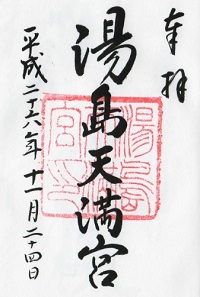 奉拝
湯島天満宮
平成二十六年十一月二十四日